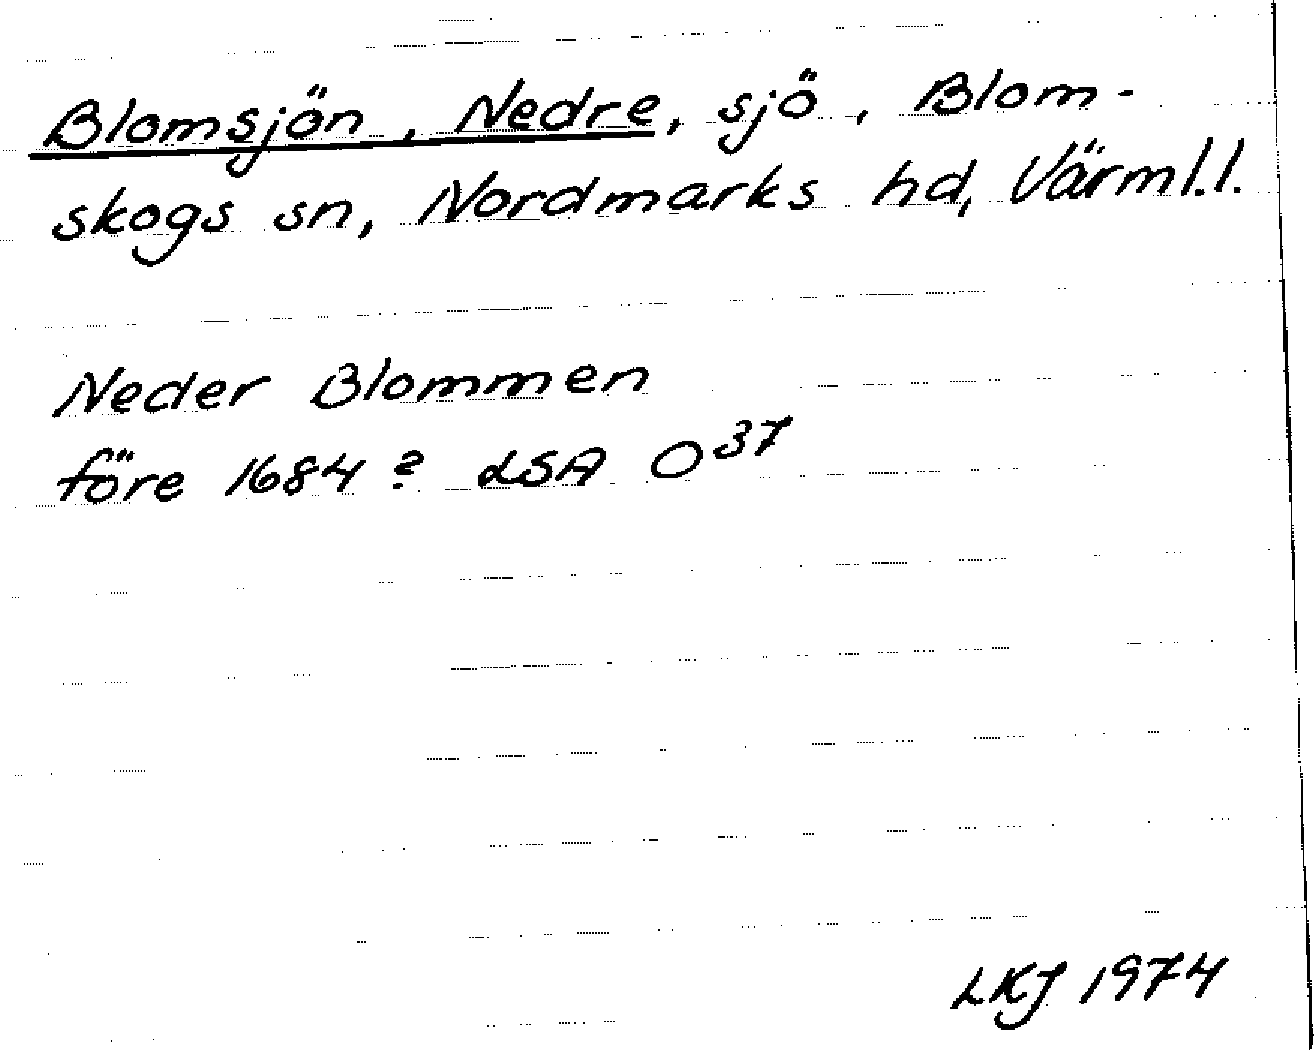 Blomsjön, Nedre, sjö, Blom-
skogs sn, Nordmarks hd, Värml.l.
Neder Blommen
före 1684? LSA O37
LKJ 1974